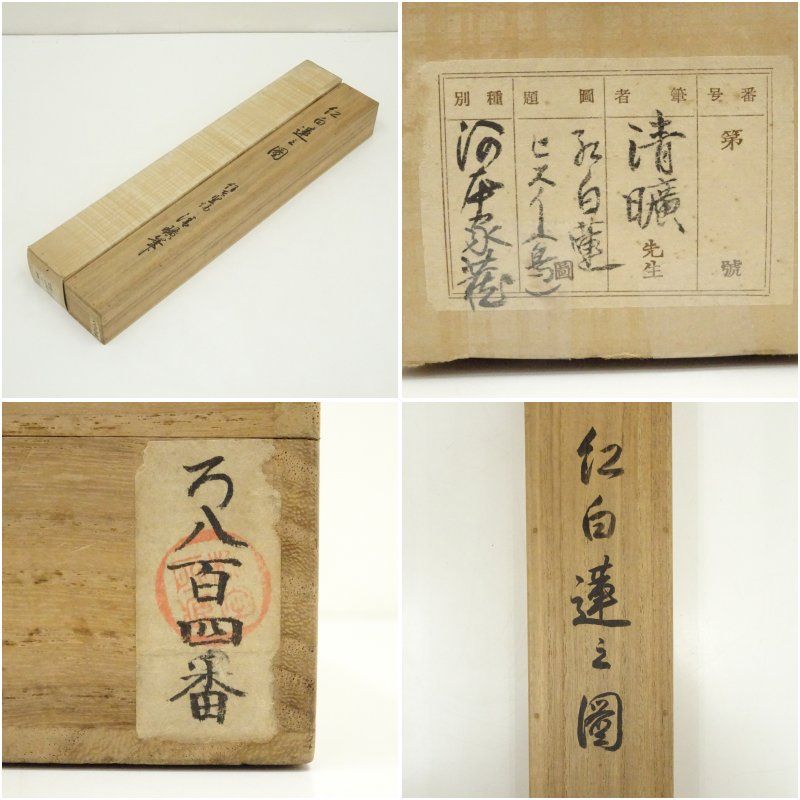 紅白蓮之圖
清曠筆
番号
第 號
筆者
清曠先生
圖題
紅白蓮
ヒスイ(鳥)
圖
種別
河本家蔵
ろ八百四番
紅白蓮之圖